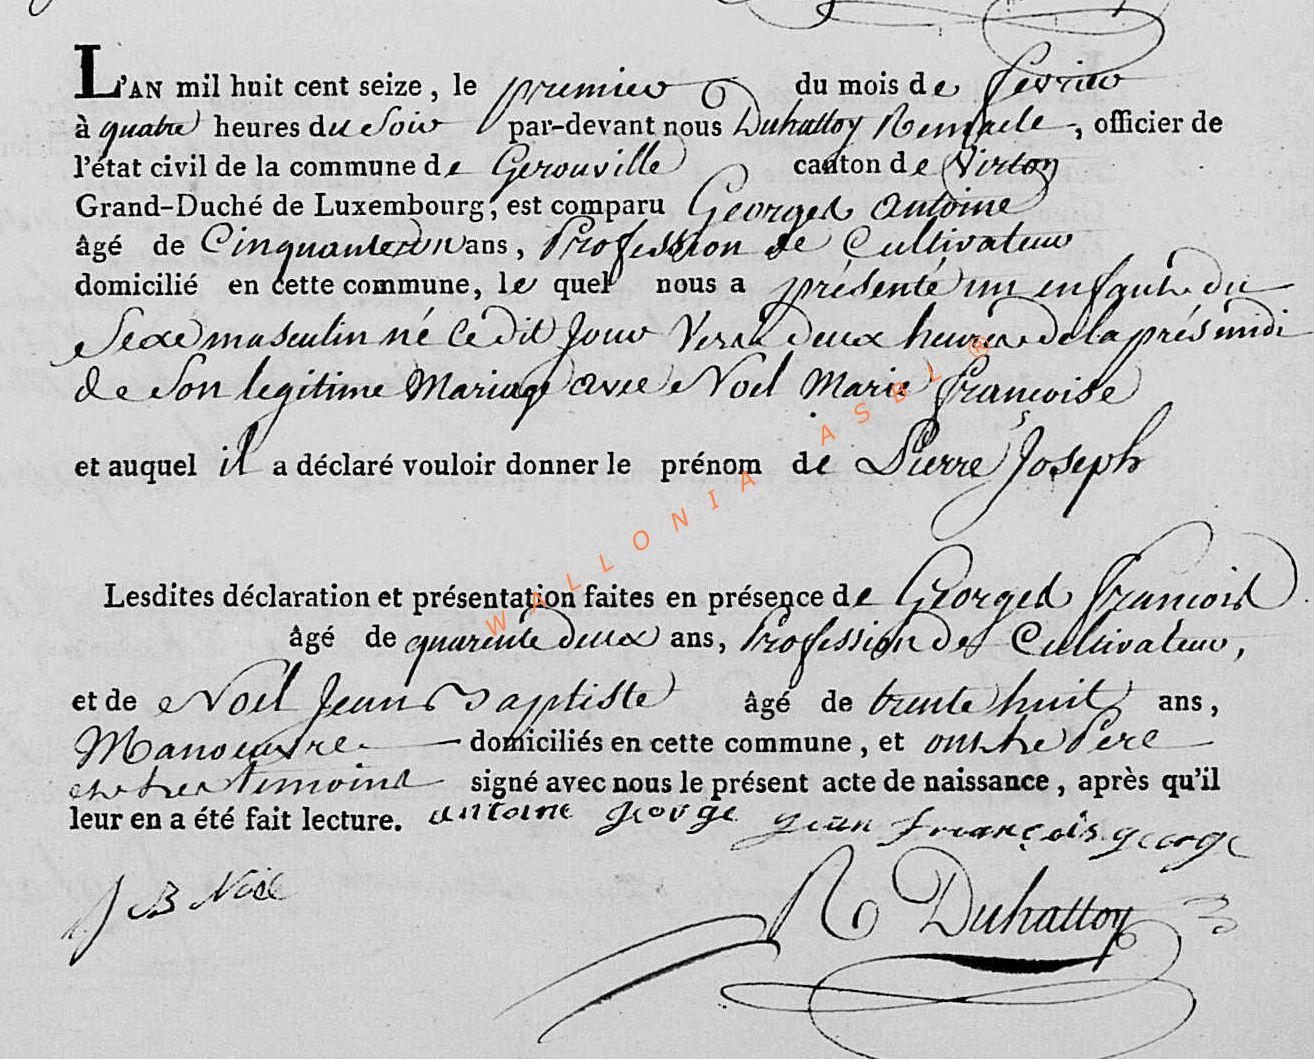 L'AN mil huit cent seize, le premier du mois de fevrier
à quatre heures du Soir par-devant nous Duhattoy Remacle, officier de
l'état civil de la commune de Gerouville canton de Virton
Grand-Duché de Luxembourg, est comparu Georges Antoine
âgé de Cinquante un ans, Profession de Cultivateur
domicilié en cette commune, le quel nous a présenté un enfant du
Sexe masculin né Cedit Jour Vers deux heures de laprésmidi
de Son legitime Mariage avec Noel Marie françoise
et auquel il a déclaré vouloir donner le prénom de Pierre Joseph
Lesdites déclaration et présentation faites en présence de Georges françois
âgé de quarente deux ans, Profession de Cultivateur,
et de Noël Jean Baptiste âgé de trente huit ans,
Manoeuvre domiciliés en cette commune, et ont le Pere
et les temoins signé avec nous le présent acte de naissance, après qu'il
leur en a été fait lecture. antoine george jean françois george
J B Noel
R Duhattoy
WALLONIA ASBL ®